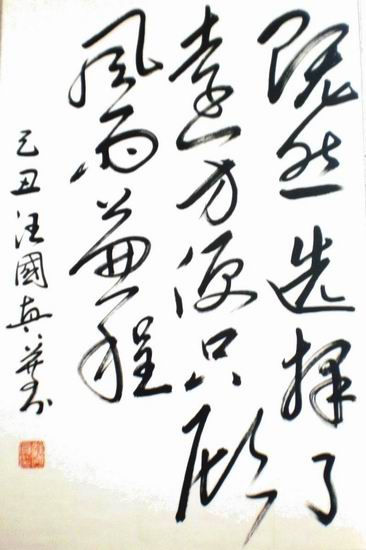 既然选择了
远方便只顾
风雨兼程
己丑汪國真并书